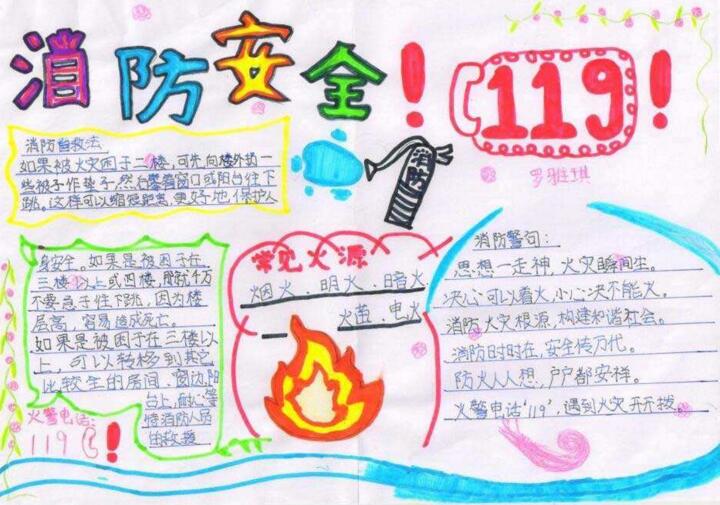 消防安全！
119！
罗雅琪
消防自救法
如果被火灾困于二楼，可先向楼外扔一
些被子作垫子，然后攀着窗口或阳台往下
跳。这样可以缩短距离，更好地保护人
身安全。如果是被困于在
三楼以上或四楼，那就千万
不要急于往下跳，因为楼
层高，容易造成死亡。
如果是被困于在三楼以
上，可以转移到其它
比较安的房间、窗边、阳
台上，耐心等
待消防人员
由救援
火警电话：
119！
消防
常见火源
烟火、明火、暗火、
火苗、电火
消防警句：
思想一走神，火灾瞬间生。
决心可以着火，小心决不能火。
消防火灾根源，构建和谐社会。
消防时时在，安全传万代。
防火人人想，户户都安祥。
火警电话‘119’，遇到火灾开不拨。